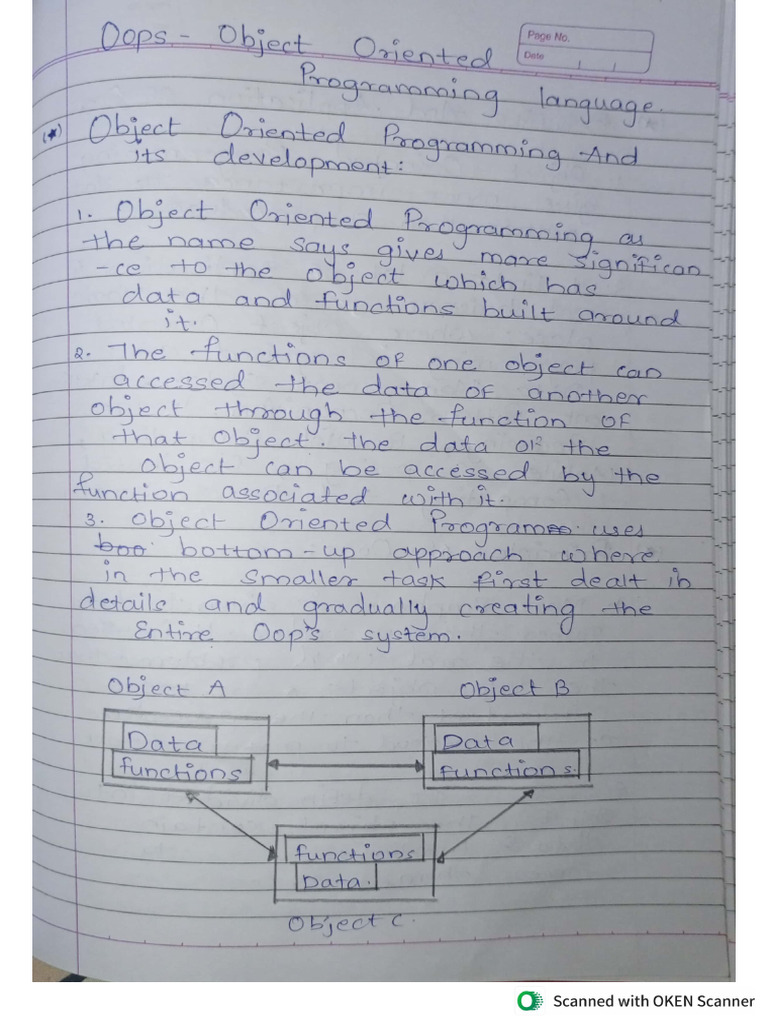 Oops - Object Oriented
Programming language.
Page No.
Date
(*) Object Oriented Programming And
its development:
1. Object Oriented Programming as
the name says gives more significan
-ce to the object which has
data and functions built around
it.
2. The functions of one object can
accessed the data of another
object through the function of
that object. the data of the
object can be accessed by the
function associated with it.
3. Object Oriented Program uses
bottom-up approach where
in the smaller task first dealt in
details and gradually creating the
Entire Oop's system.
Object A Object B
Data Data
functions functions.
functions
Data.
Object C.
Scanned with OKEN Scanner